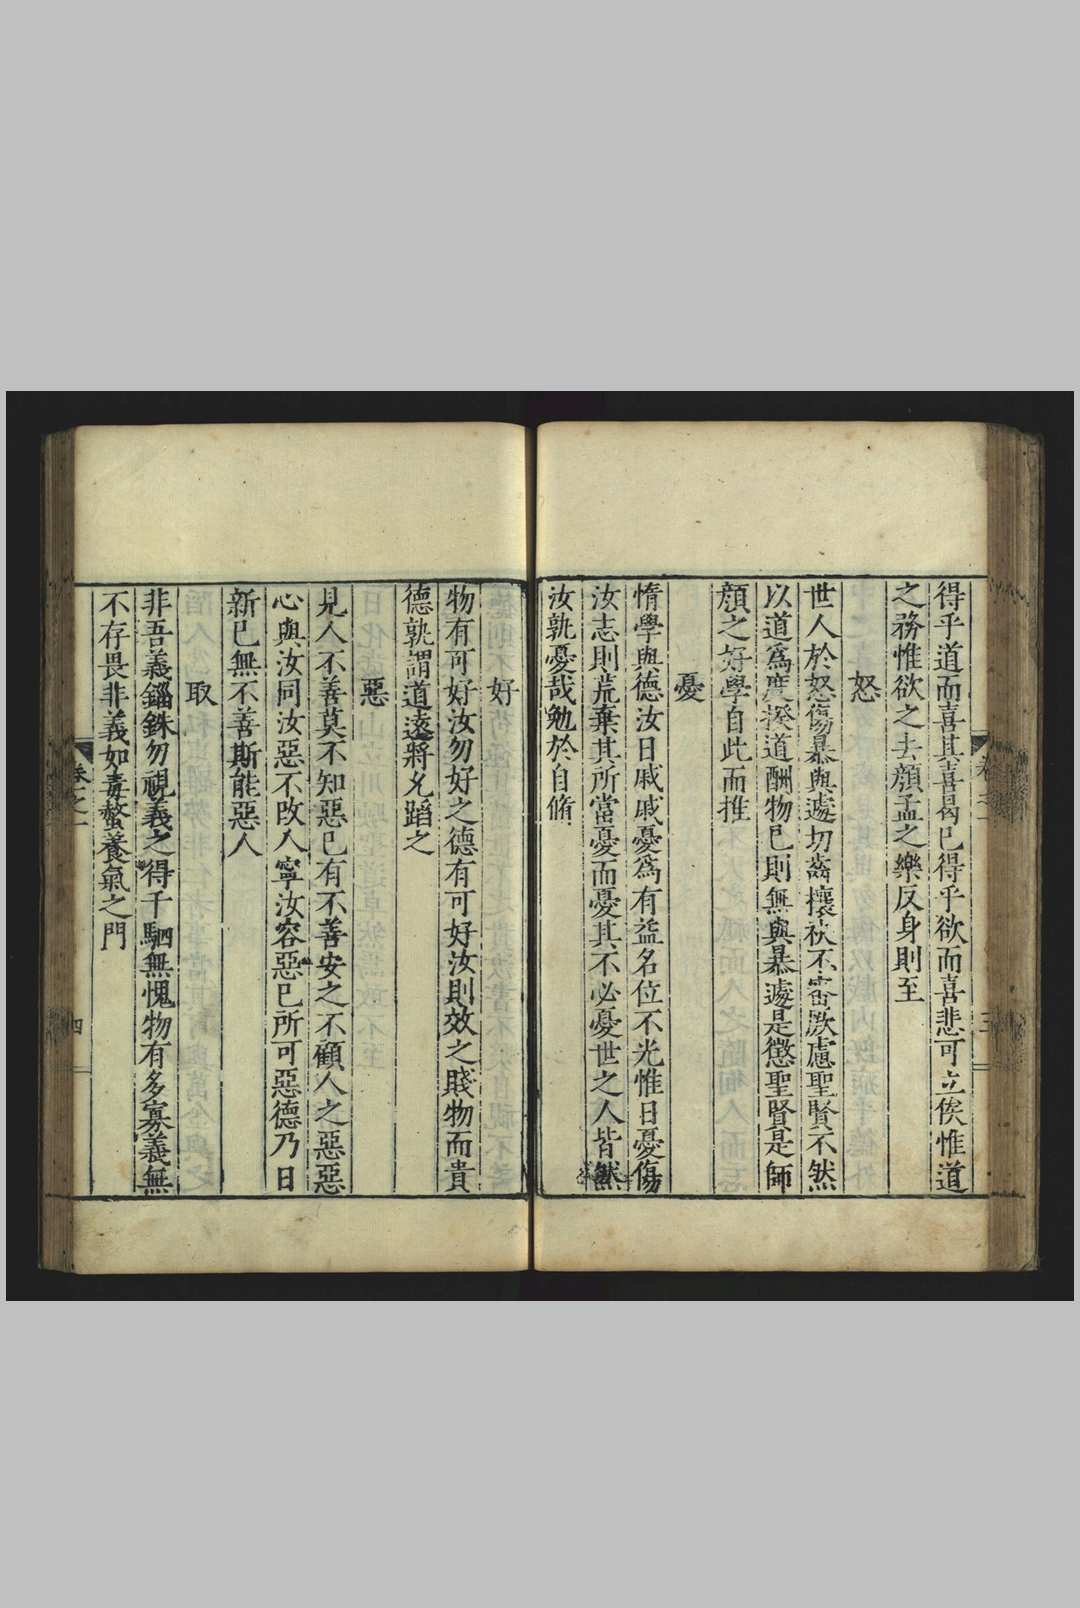 得乎道而喜其喜曷已得乎欲而喜悲可立俟惟道
之務惟欲之去顏孟之樂反身則至
怒
世人於怒傷暴與遽切齒攘袂不審厥慮聖賢不然
以道爲度揆道酬物已則無與暴遽是懲聖賢是師
顏之好學自此而推
憂
惰學與德汝日戚戚憂爲有益名位不光惟日憂傷
汝志則荒棄其所當憂而憂其不必憂世之人皆然
汝孰憂哉勉於自脩
好
物有可好汝勿好之德有可好汝則效之賤物而貴
德孰謂道遠將允蹈之
惡
見人不善莫不知惡已有不善安之不顧人之惡惡
心與汝同汝惡不改人寧汝容惡已所可惡德乃日
新已無不善斯能惡人
取
非吾義錙銖勿視義之得千駟無愧物有多寡義無
不存畏非義如毒螫養氣之門
卷之一
四